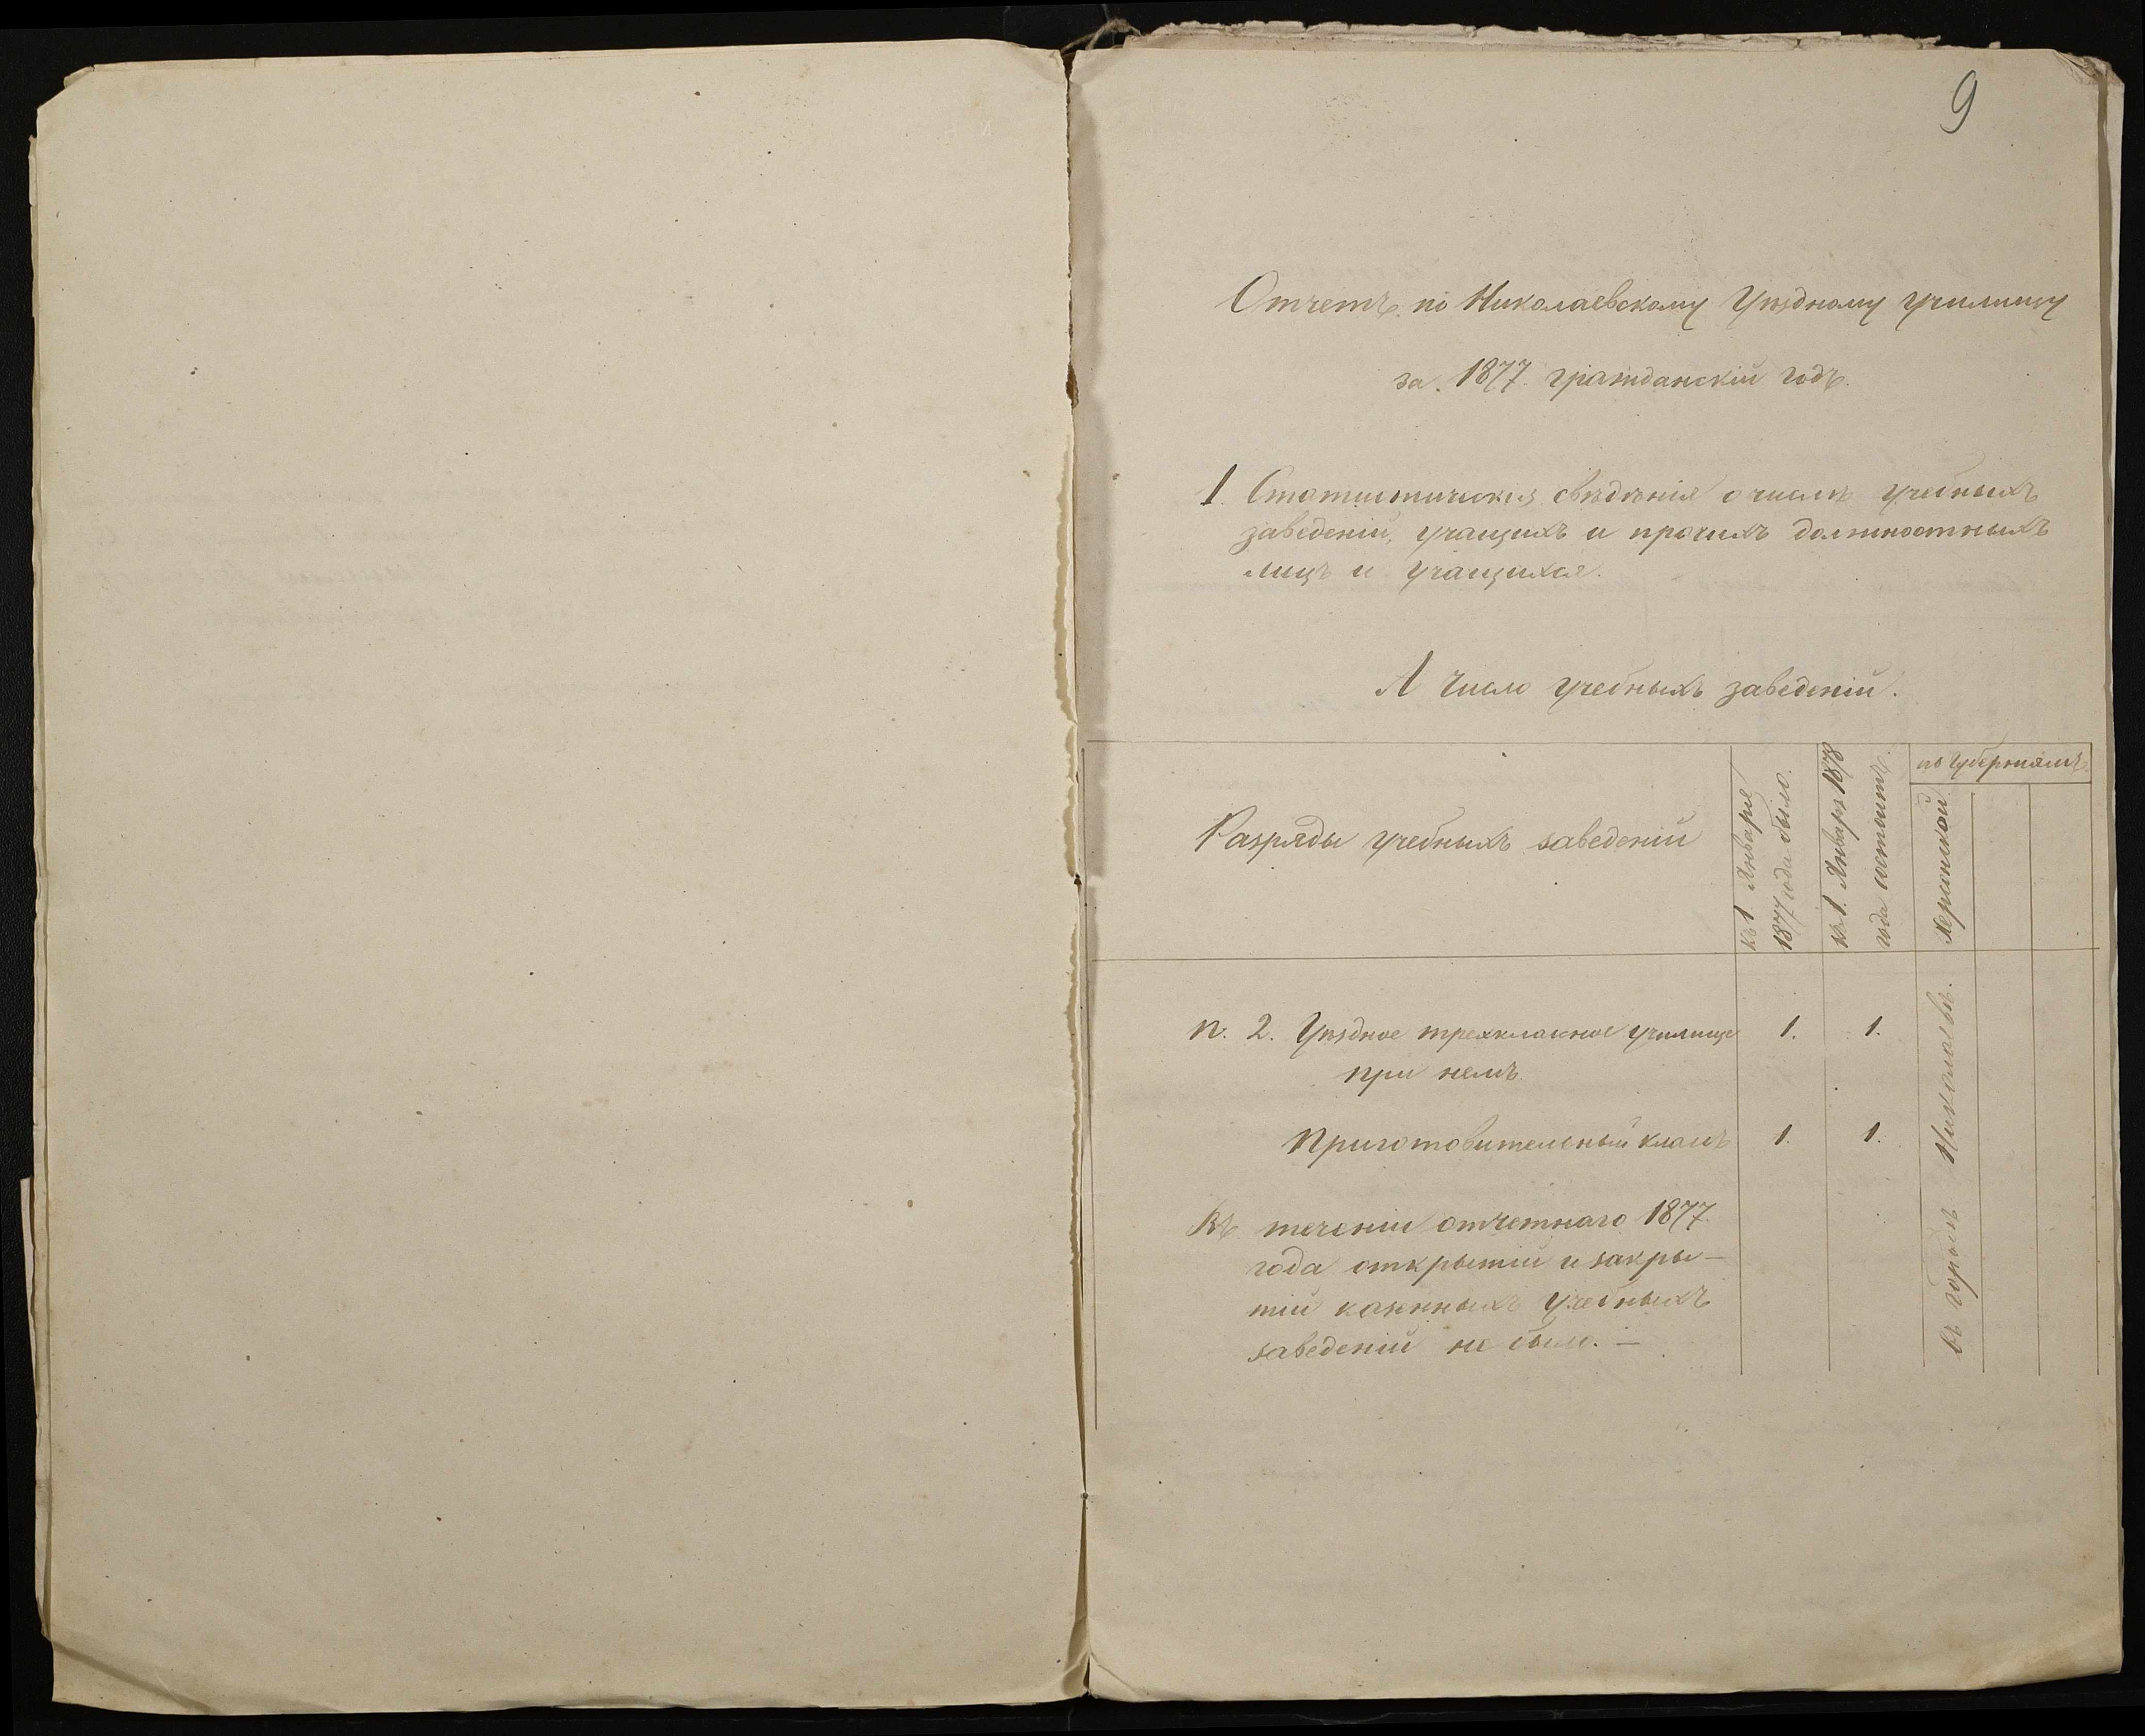 9
Отчетъ по Николаевскому Уѣздному училищу
за 1877 гражданскій годъ.
1. Статистическія свѣдѣнія о числѣ учебныхъ
заведеній, учащихъ и прочихъ должностныхъ
лицъ и учащихся.
А Число учебныхъ заведеній.
Разряды учебныхъ заведеній
къ 1. Января
1877 года было.
къ 1. Января 1878
года состоитъ.
по губерніямъ.
Херсонской
п. 2. Уѣздное трехклассное училище 1. 1.
при немъ
Приготовительный классъ 1. 1.
въ городѣ Николаевѣ.
Въ теченіи отчетнаго 1877
года открытій и закры-
тій казенныхъ учебныхъ
заведеній не было. —